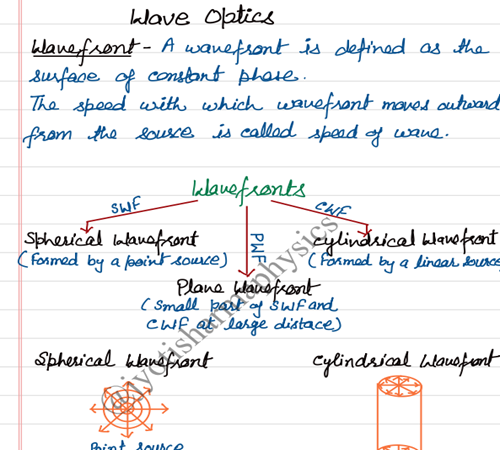 Wave Optics
Wavefront - A wavefront is defined as the
surface of constant phase.
The speed with which wavefront moves outward
from the source is called speed of wave.
Wavefronts
SWF
PWF
CWF
Spherical Wavefront
(Formed by a point source)
Cylindrical Wavefront
(Formed by a linear source
Plane Wavefront
(Small part of SWF and
CWF at large distace)
Spherical Wavefront
Cylindrical Wavefront
Point source
@jyotisharmaphysics